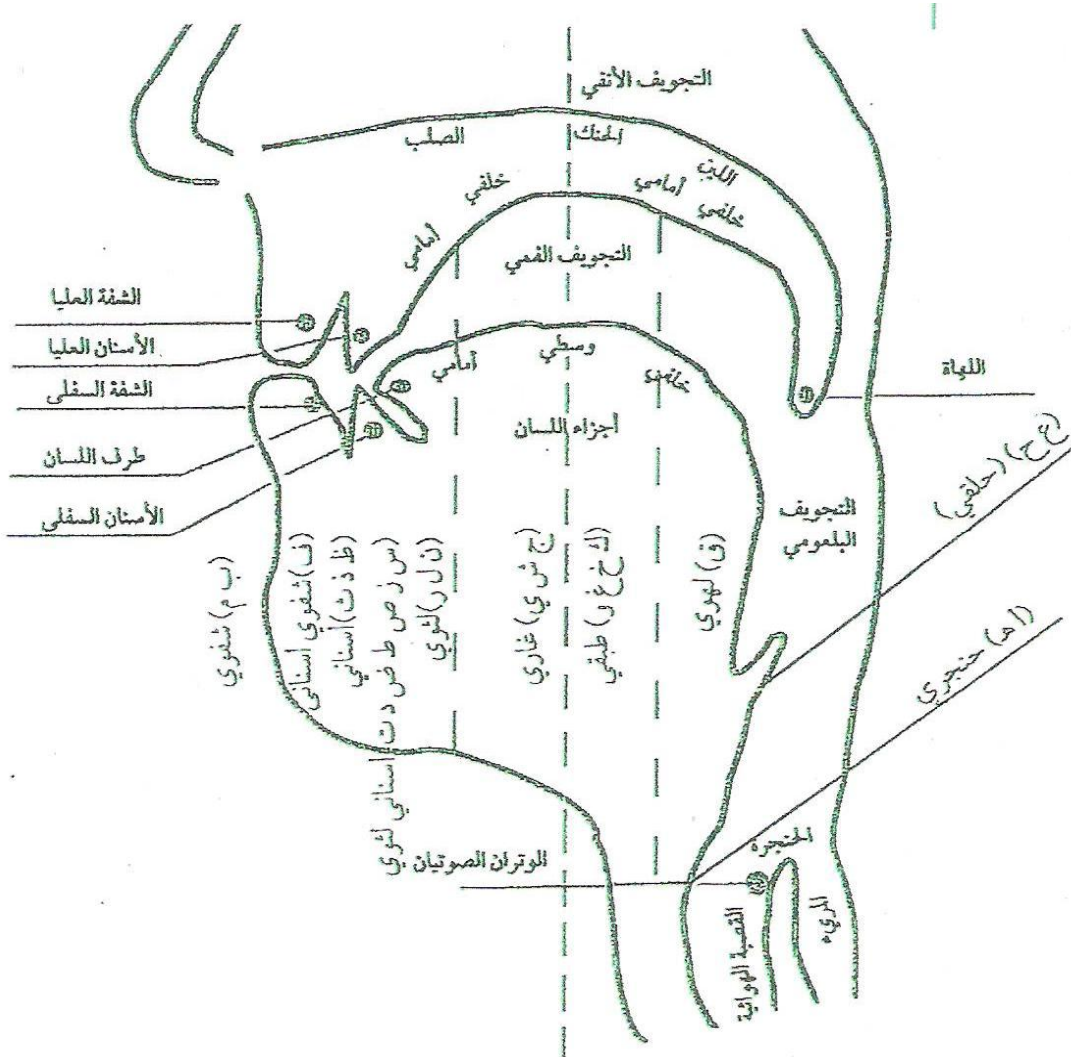 التجويف الأنفي
الصلب
الحنك
اللين
أمامي
خلفي
أمامي
خلفي
التجويف الفمي
الشفة العليا
الأسنان العليا
الشفة السفلى
طرف اللسان
الأسنان السفلى
أمامي
وسطي
خلفي
أجزاء اللسان
اللهاة
التجويف
البلعومي
(ع ح) (حلقي)
(أ هـ) حنجري
(ب م) شفوي
(ف) شفوي أسناني
(ظ ذ ث) أسناني
(س ز ص ط ض د ت) أسناني لثوي
(ن ل ر) لثوي
(ج ش ي) غاري
(ك خ غ و) طبقي
(ق) لهوي
الوتران الصوتيان
الحنجرة
القصبة الهوائية
المريء